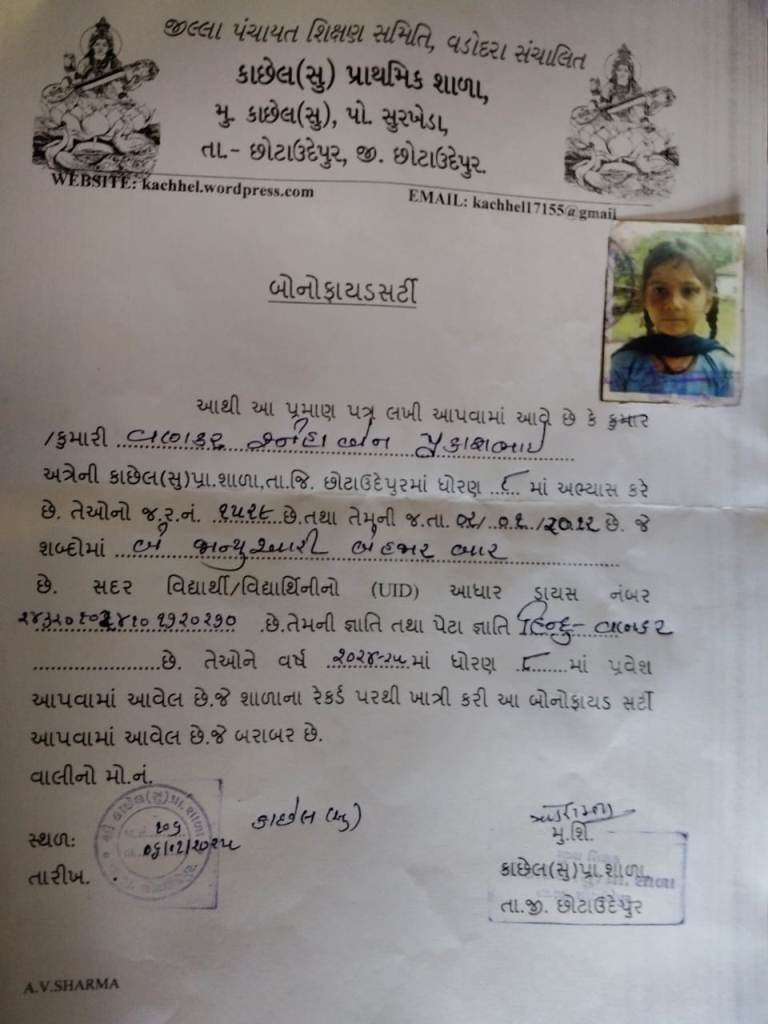 જીલ્લા પંચાયત શિક્ષણ સમિતિ, વડોદરા સંચાલિત
કાછેલ(સુ) પ્રાથમિક શાળા,
મુ. કાછેલ(સુ), પો. સુરખેડા,
તા.- છોટાઉદેપુર, જી. છોટાઉદેપુર.
WEBSITE: kachhel.wordpress.com
EMAIL: kachhel17155@gmail
બોનોફાયડસર્ટી
આથી આ પ્રમાણ પત્ર લખી આપવામાં આવે છે કે કુમાર
/કુમારી વણકર સ્નેહાબેન પ્રકાશભાઈ
અત્રેની કાછેલ(સુ)પ્રા.શાળા,તા.જિ. છોટાઉદેપુરમાં ધોરણ ૮ માં અભ્યાસ કરે
છે. તેઓનો જ.ર.નં. ૧૫૨૯ છે.તથા તેમની જ.તા. ૦૨/૦૧/૨૦૧૨ છે. જે
શબ્દોમાં બે જાન્યુઆરી બે હજાર બાર
છે. સદર વિદ્યાર્થી/વિદ્યાર્થિનીનો (UID) આધાર ડાયસ નંબર
છે.તેમની જ્ઞાતિ તથા પેટા જ્ઞાતિ હિન્દુ- વણકર
છે. તેઓને વર્ષ ૨૦૨૪-૨૫ માં ધોરણ ૮ માં પ્રવેશ
આપવામાં આવેલ છે.જે શાળાના રેકર્ડ પરથી ખાત્રી કરી આ બોનોફાયડ સર્ટી
આપવામાં આવેલ છે.જે બરાબર છે.
વાલીનો મો.નં.
કાછેલ (સુ)
સ્થળ:
તારીખ.
મુ.શિ.
કાછેલ(સુ)પ્રા.શાળા,
તા.જી. છોટાઉદેપુર
A.V.SHARMA